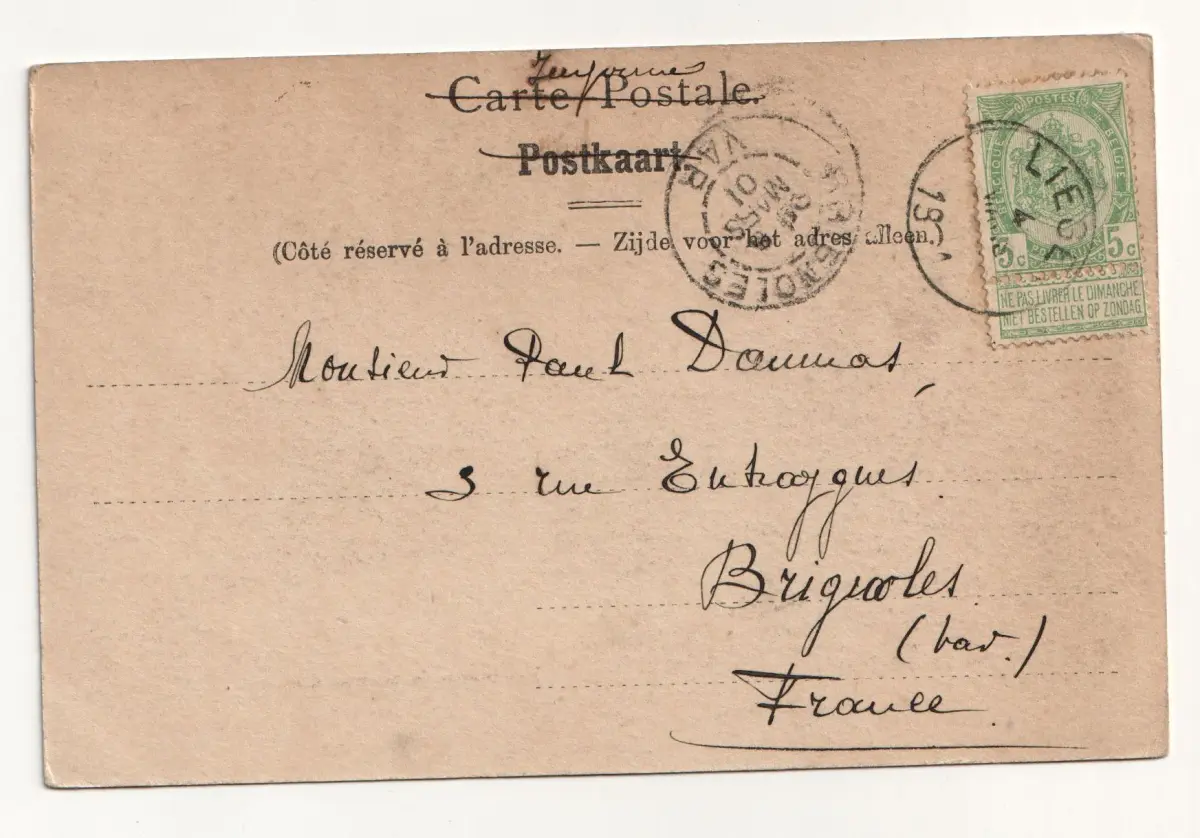 Carte Postale.
Postkaart.
(Côté réservé à l'adresse. — Zijde voor het adres alleen.)
BRIGNOLES
VAR
MARS
01
LIEGE
4
19
POSTES
BELGIQUE
BELGIE
5c 5c
NE PAS LIVRER LE DIMANCHE
NIET BESTELLEN OP ZONDAG
Monsieur Paul Daumas,
3 rue Entraygues
Brignoles
(Var.)
France